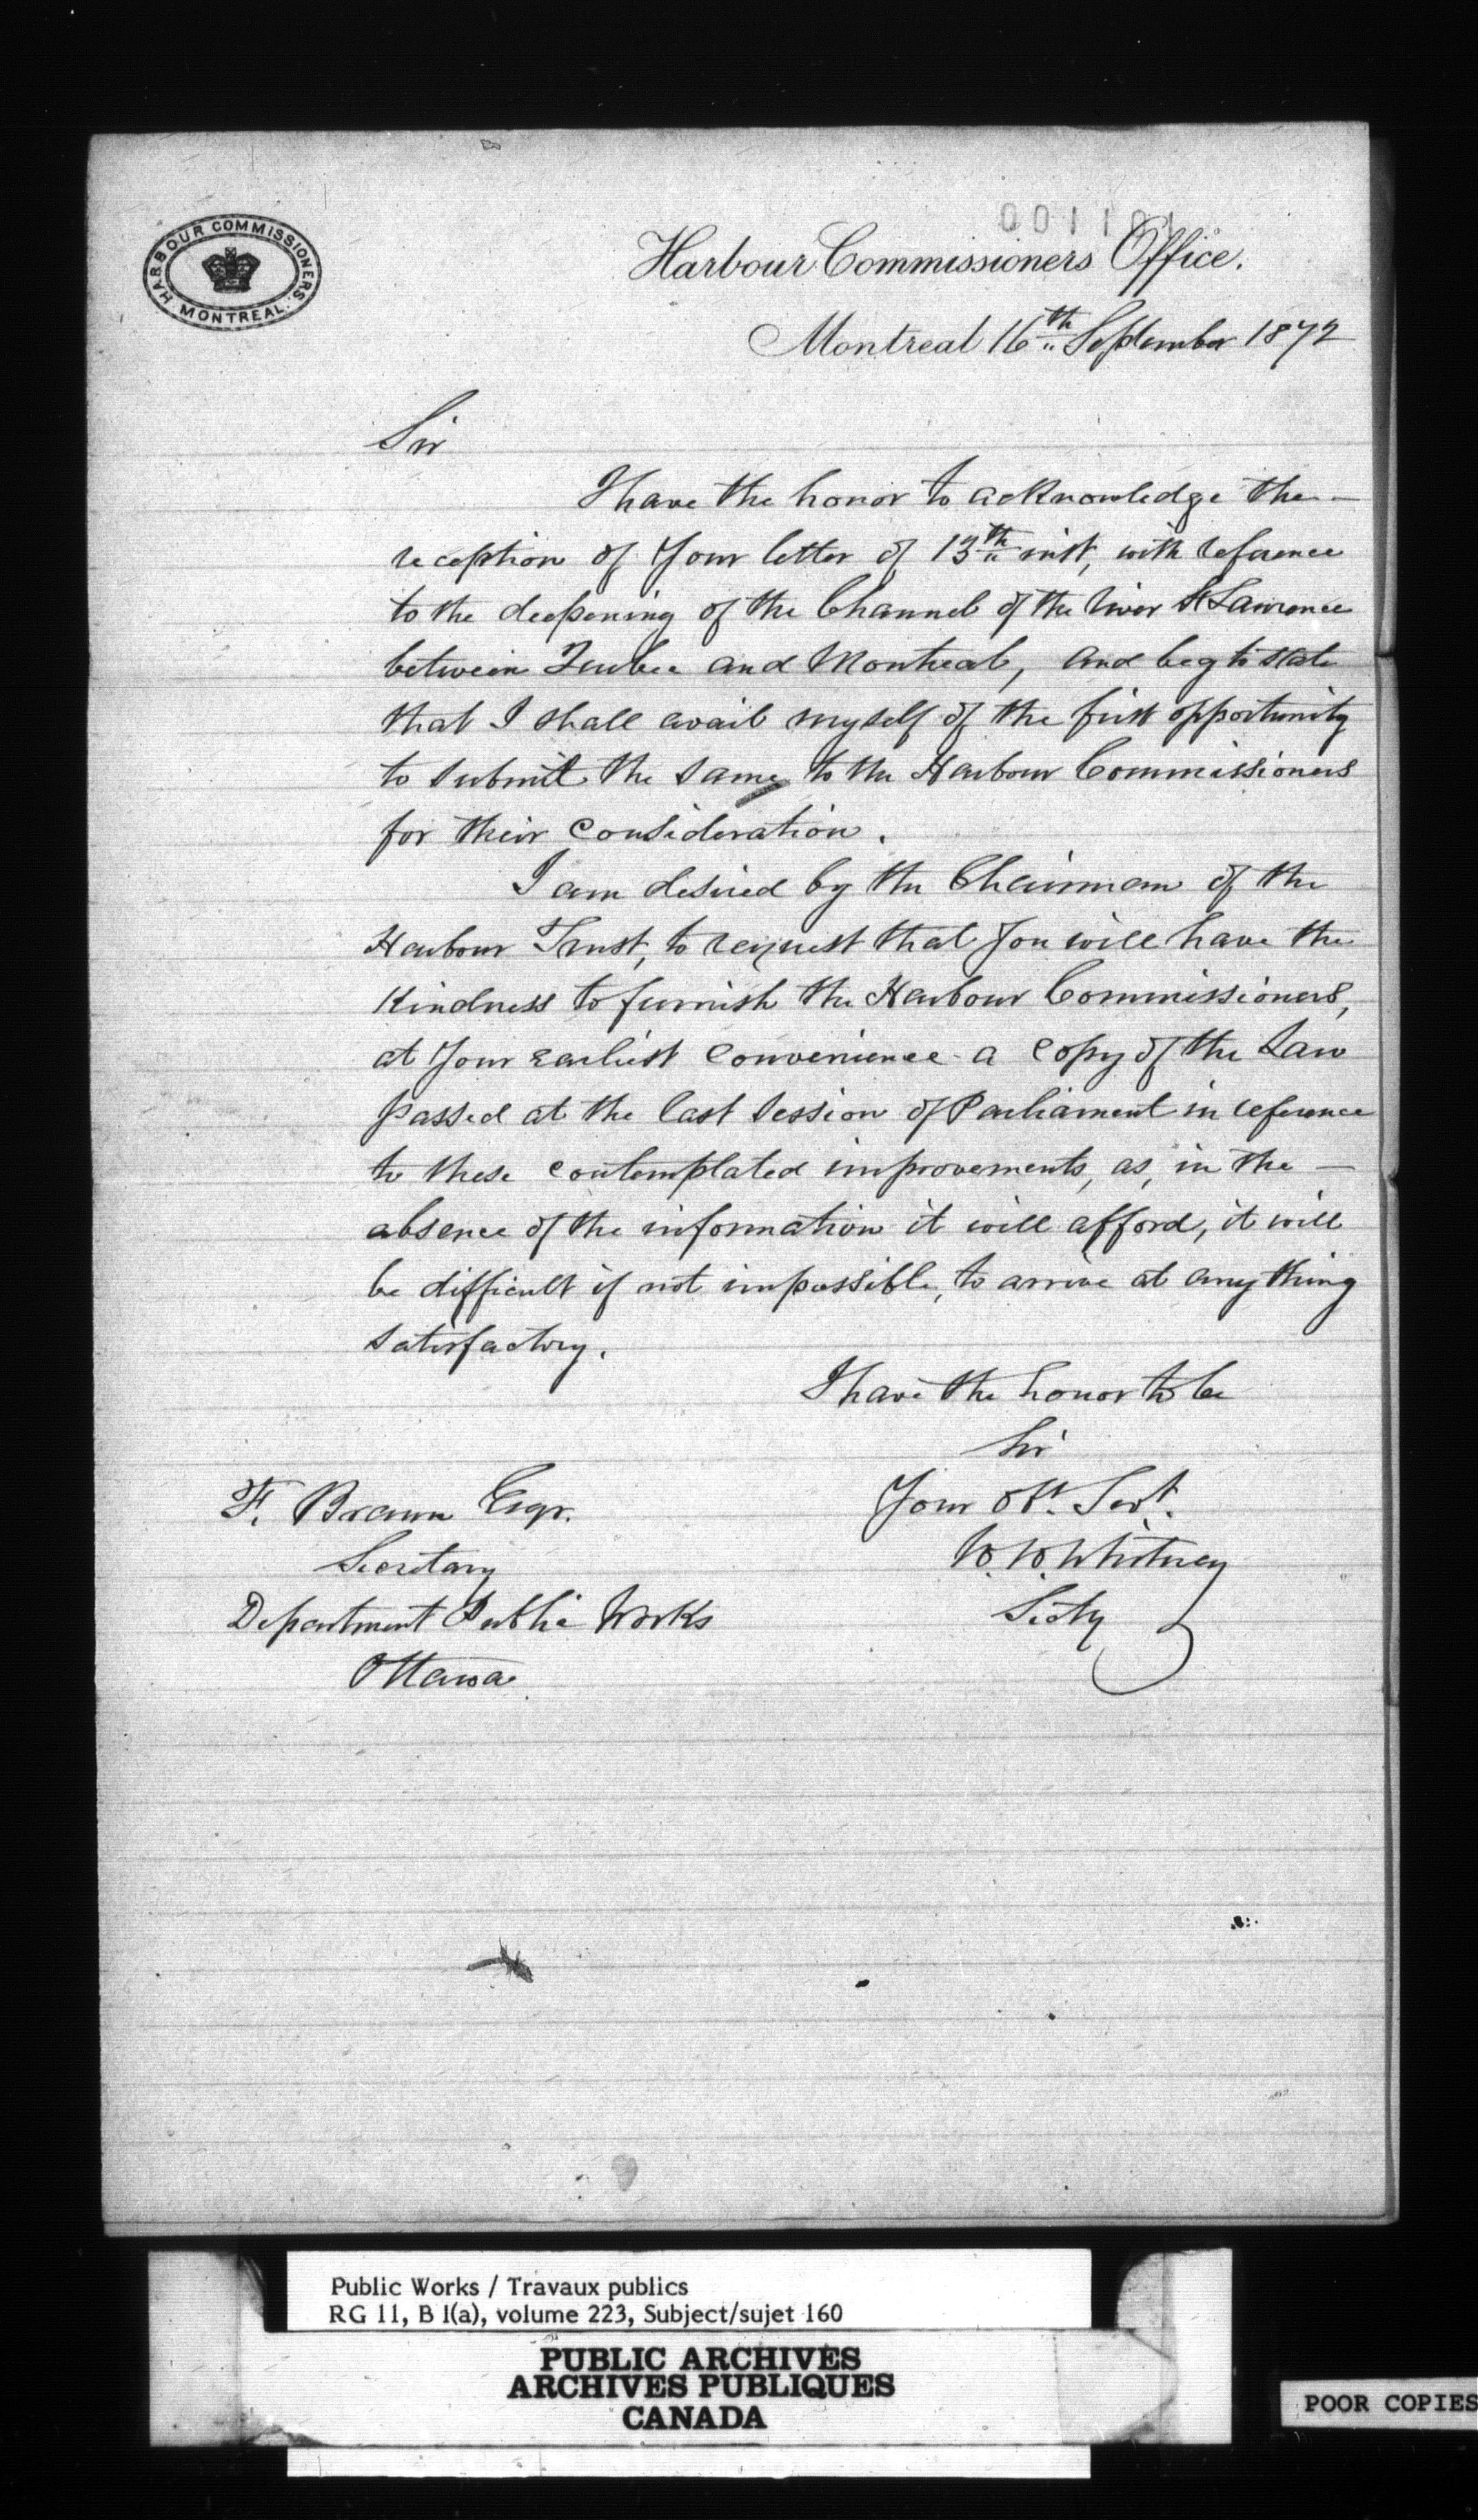 HARBOUR COMMISSIONERS. MONTREAL.
Harbour Commissioners Office.
Montreal 16th September 1872
Sir
I have the honor to acknowledge the —
reception of Your letter of 13th inst, with reference
to the deepening of the Channel of the River St Lawrence
between Quebec and Montreal, and beg to state
that I shall avail myself of the first opportunity
to submit the same to the Harbour Commissioners
for their Consideration.
I am desired by the Chairman of the
Harbour Trust, to request that You will have the
Kindness to furnish the Harbour Commissioners,
at Your Earliest Convenience a Copy of the Law
passed at the last Session of Parliament in reference
to these contemplated improvements, as, in the —
absence of the information it will afford, it will
be difficult if not impossible, to arrive at any thing
satisfactory.
I have the honor to be
Sir
Your Obt. Servt.
W. W. Whitney
Secty
F. Braun Esqr.
Secretary
Department Public Works
Ottawa
Public Works / Travaux publics
RG 11, B 1(a), volume 223, Subject/sujet 160
PUBLIC ARCHIVES
ARCHIVES PUBLIQUES
CANADA
POOR COPIES